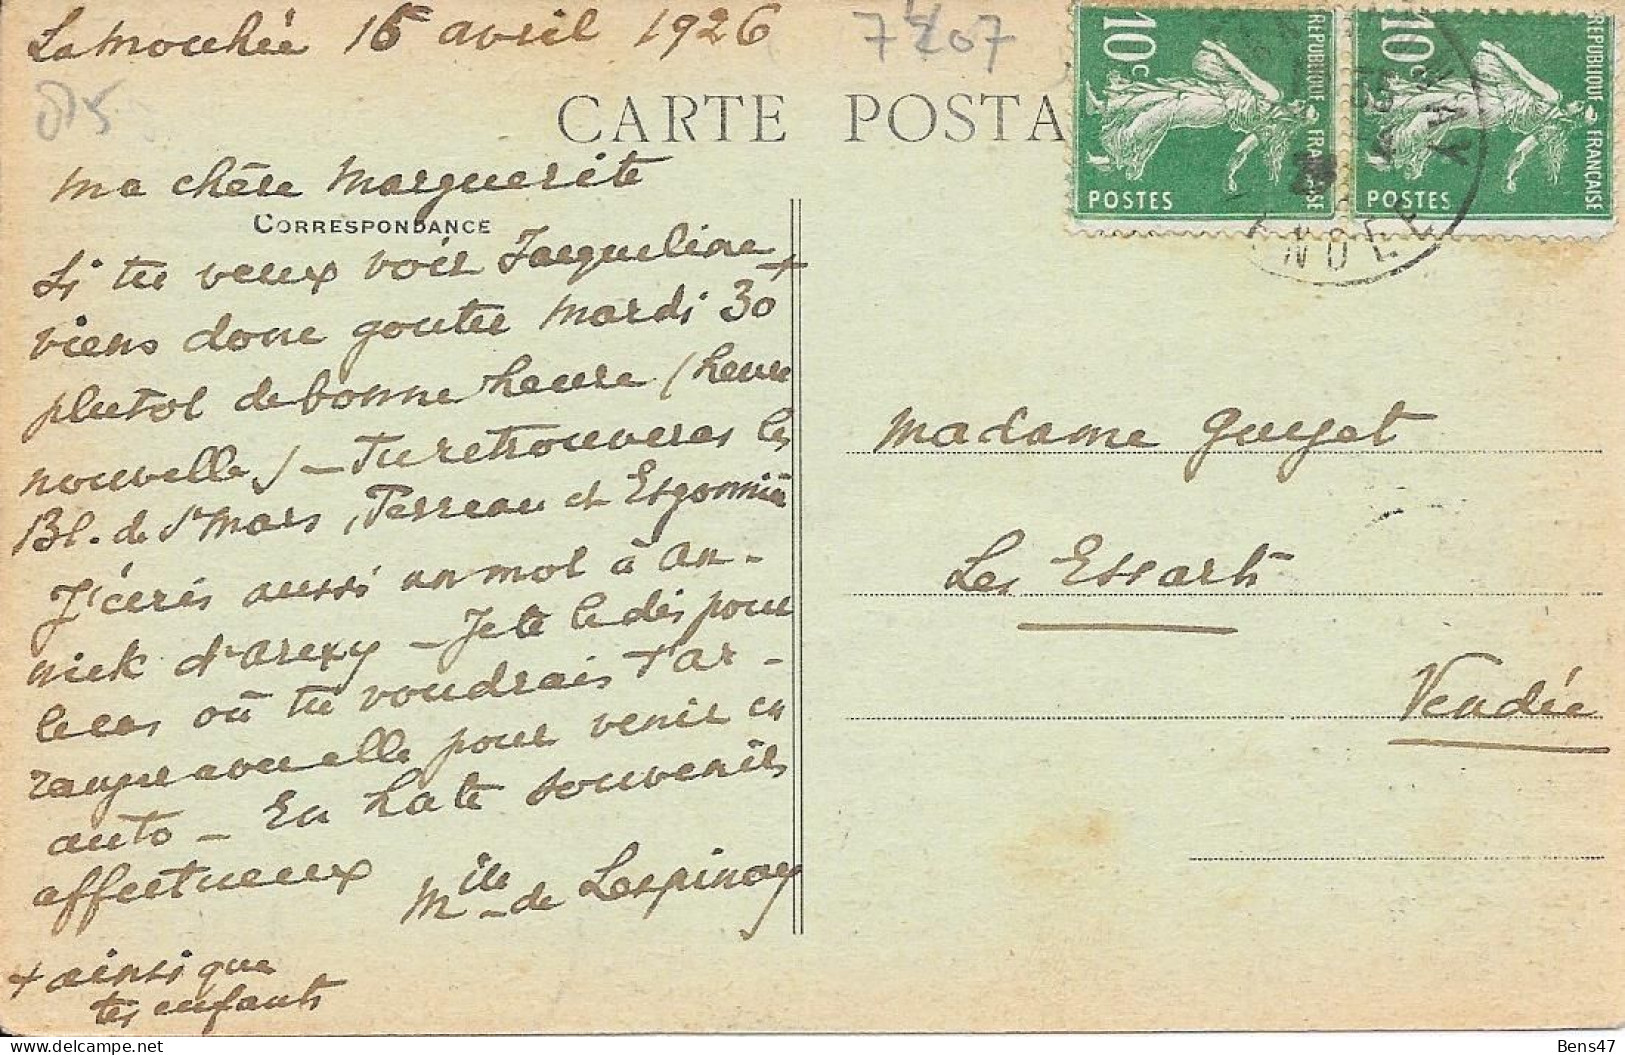 La mouhée 16 avril 1926
7207
85
CARTE POSTA
CORRESPONDANCE
10c REPUBLIQUE FRANÇAISE POSTES
10c REPUBLIQUE FRANÇAISE POSTES
ma chère Marguerite
Si tu veux voir Jacqueline +
viens donc gouter mardi 30
plutot de bonne heure (heure
nouvelle) - Tu retrouveras les
Bl. de St Mars, Perreau et Esgonnière
J'écris aussi un mot à An-
nick d'Arexy - Je te le dis pour
le cas où tu voudrais t'ar-
ranger avec elle pour venir en
auto - En hate souvenirs
affectueux
Mlle de Lespinay
+ ainsi que
tes enfants
Madame Guyet
Les Essarts
Vendée